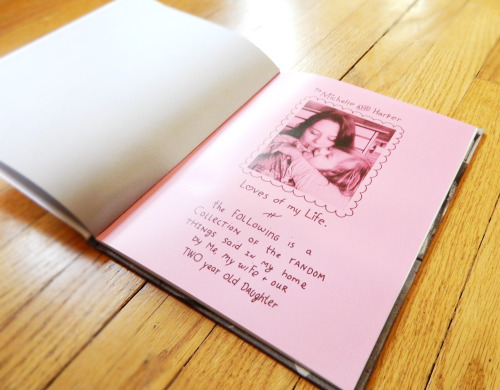 To Michelle AND Harker
Loves of my Life.
the FOLLOWING is a
COLLECTION OF the RANDOM
THINGS Said IN my home
by Me, my wife + OUR
TWO year OLD Daughter